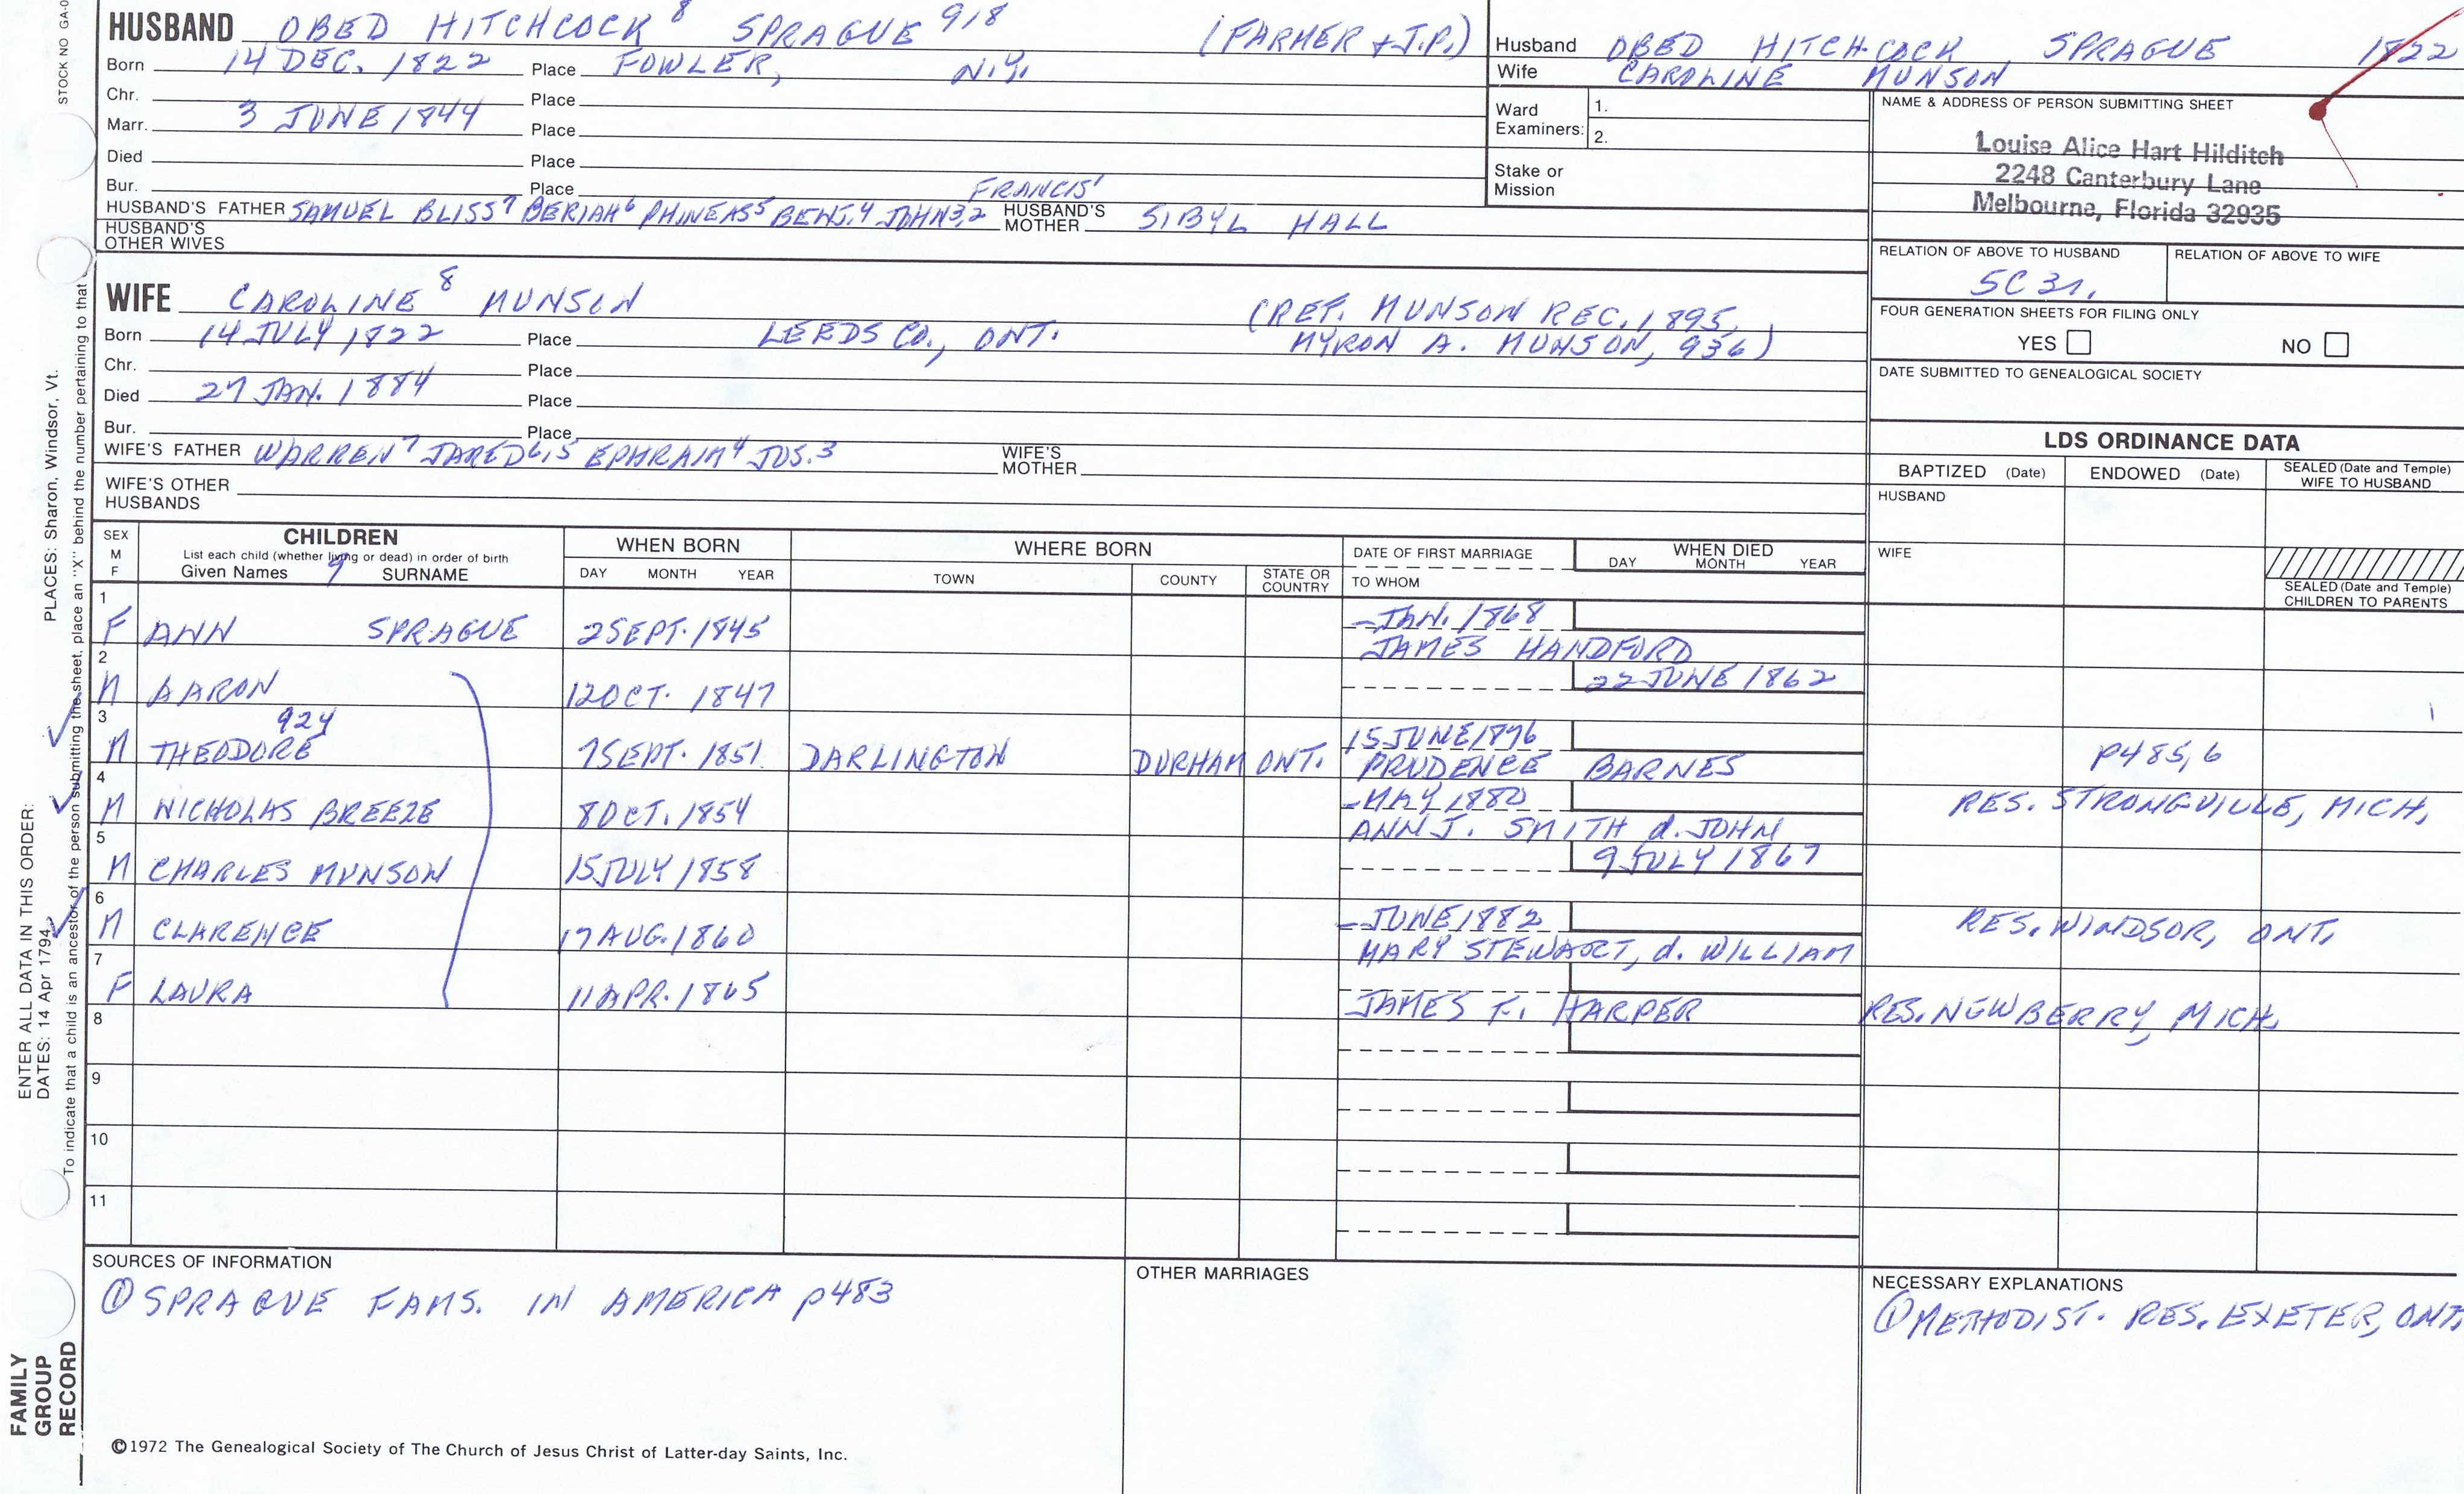 STOCK NO GA-0
HUSBAND OBED HITCHCOCK 8 SPRAGUE 918 (FARMER + J.P.)
Born 14 DEC. 1822 Place FOWLER, N.Y.
Chr. Place
Marr. 3 JUNE 1844 Place
Died Place
Bur. Place
HUSBAND'S FATHER SAMUEL BLISS7 BERIAH6 PHINEAS5 BENJ.4 JOHN3,2 FRANCIS1 HUSBAND'S MOTHER SIBYL HALL
HUSBAND'S OTHER WIVES
Husband OBED HITCHCOCK SPRAGUE 1822
Wife CAROLINE MUNSON
Ward Examiners: 1.
2.
Stake or Mission
NAME & ADDRESS OF PERSON SUBMITTING SHEET
Louise Alice Hart Hilditch
2248 Canterbury Lane
Melbourne, Florida 32935
RELATION OF ABOVE TO HUSBAND RELATION OF ABOVE TO WIFE
5C 3r.
FOUR GENERATION SHEETS FOR FILING ONLY
YES NO
DATE SUBMITTED TO GENEALOGICAL SOCIETY
WIFE CAROLINE 8 MUNSON (REF. MUNSON REC. 1895,
Born 14 JULY 1822 Place LEEDS CO., ONT. MYRON A. MUNSON, 936)
Chr. Place
Died 27 JAN. 1884 Place
Bur. Place
WIFE'S FATHER WARREN7 JARED6,5 EPHRAIM4 JOS.3 WIFE'S MOTHER
WIFE'S OTHER HUSBANDS
LDS ORDINANCE DATA
BAPTIZED (Date) ENDOWED (Date) SEALED (Date and Temple) WIFE TO HUSBAND
HUSBAND
WIFE
SEALED (Date and Temple) CHILDREN TO PARENTS
SEX M F
CHILDREN
List each child (whether living or dead) in order of birth
Given Names 9 SURNAME
WHEN BORN
DAY MONTH YEAR
WHERE BORN
TOWN COUNTY STATE OR COUNTRY
DATE OF FIRST MARRIAGE
TO WHOM
WHEN DIED
DAY MONTH YEAR
1 F ANN SPRAGUE 2 SEPT. 1845 – JAN. 1868
JAMES HANDFORD
2 M AARON 12 OCT. 1847 22 JUNE 1862
3 M THEODORE 924 7 SEPT. 1851 DARLINGTON DURHAM ONT. 15 JUNE 1876
PRUDENCE BARNES P485,6
4 M NICHOLAS BREEZE 8 OCT. 1854 – MAY 1880
ANN J. SMITH d. JOHN RES. STRONGVILLE, MICH.
5 M CHARLES MUNSON 15 JULY 1858 9 JULY 1867
6 M CLARENCE 17 AUG. 1860 – JUNE 1882
MARY STEWART, d. WILLIAM RES. WINDSOR, ONT.
7 F LAURA 11 APR. 1865
JAMES F. HARPER RES. NEWBERRY, MICH.
8
9
10
11
SOURCES OF INFORMATION
① SPRAGUE FAMS. IN AMERICA p483
OTHER MARRIAGES
NECESSARY EXPLANATIONS
① METHODIST. RES. EXETER, ONT.
©1972 The Genealogical Society of The Church of Jesus Christ of Latter-day Saints, Inc.
ENTER ALL DATA IN THIS ORDER:
DATES: 14 Apr 1794 PLACES: Sharon, Windsor, Vt.
To indicate that a child is an ancestor of the person submitting the sheet, place an "X" behind the number pertaining to that
FAMILY
GROUP
RECORD